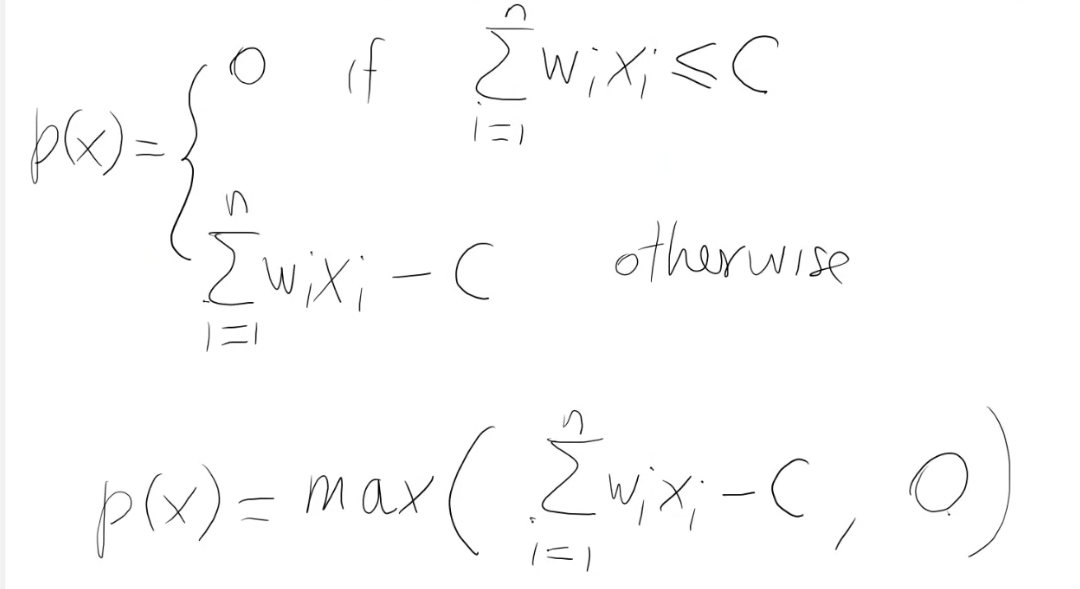 p(x) = { 0 if \sum_{i=1}^{n} w_i x_i ≤ C
\sum_{i=1}^{n} w_i x_i - C otherwise
p(x) = max( \sum_{i=1}^{n} w_i x_i - C , 0 )